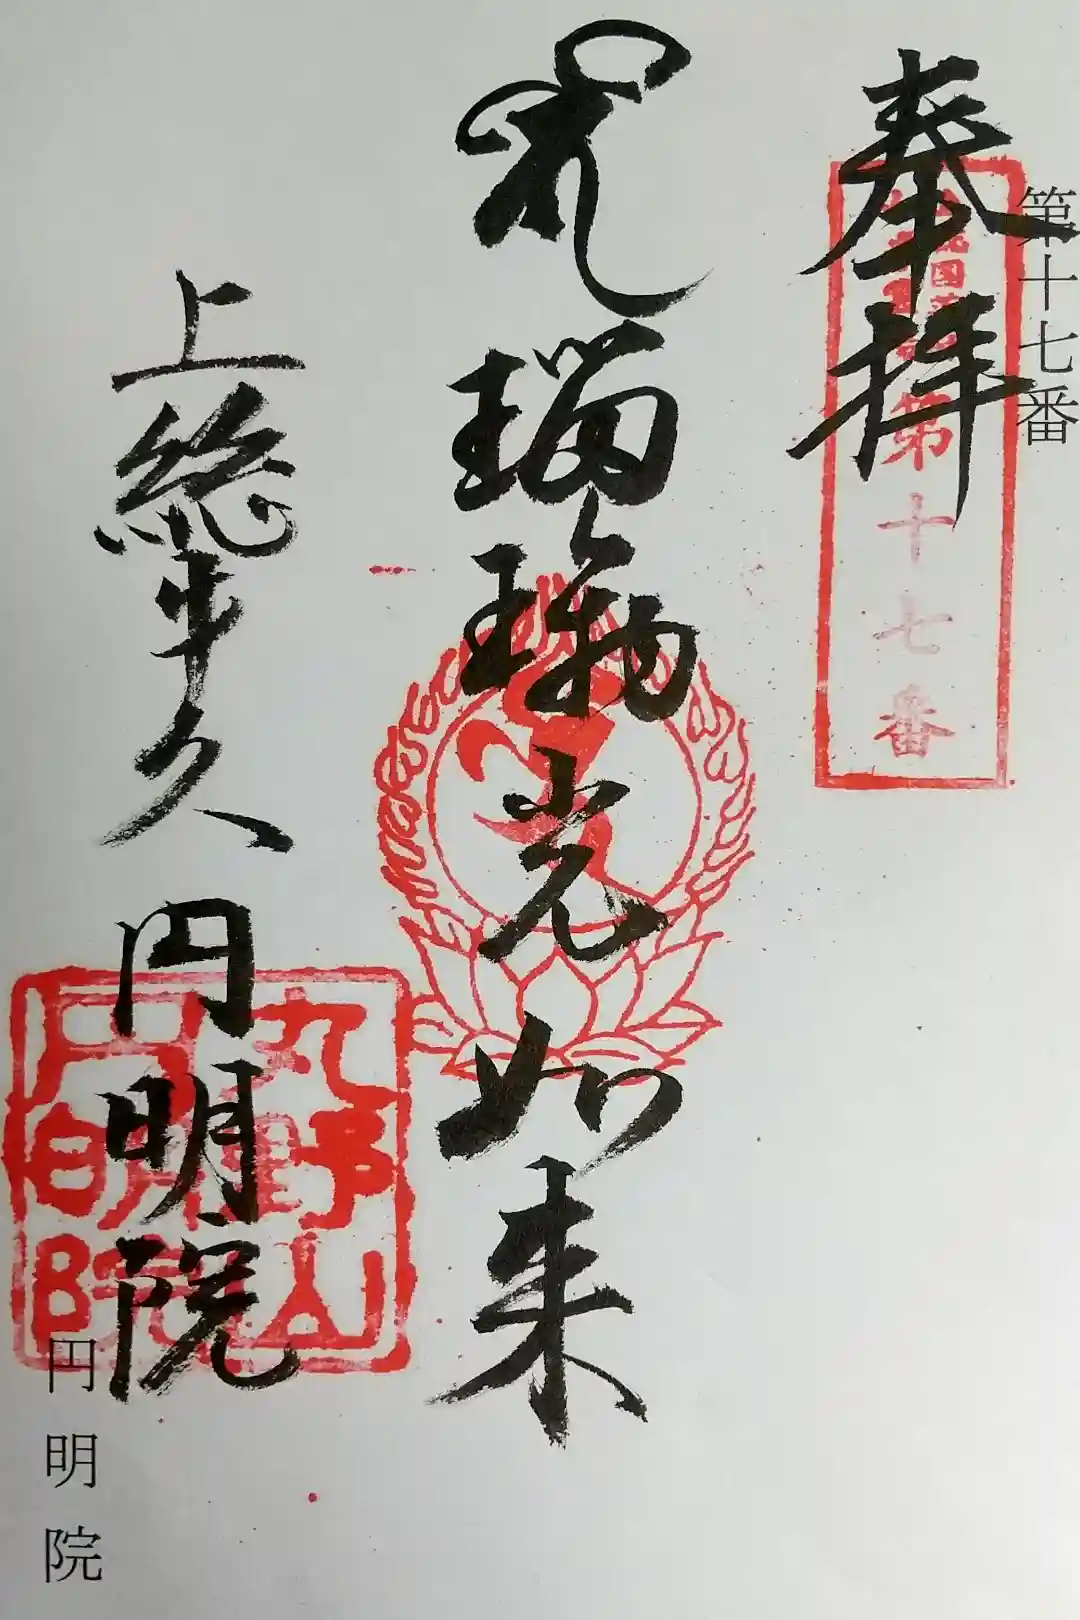 第十七番
奉拝
第十七番
瑠璃光如来
上総平久
円明院
円明院
円明院